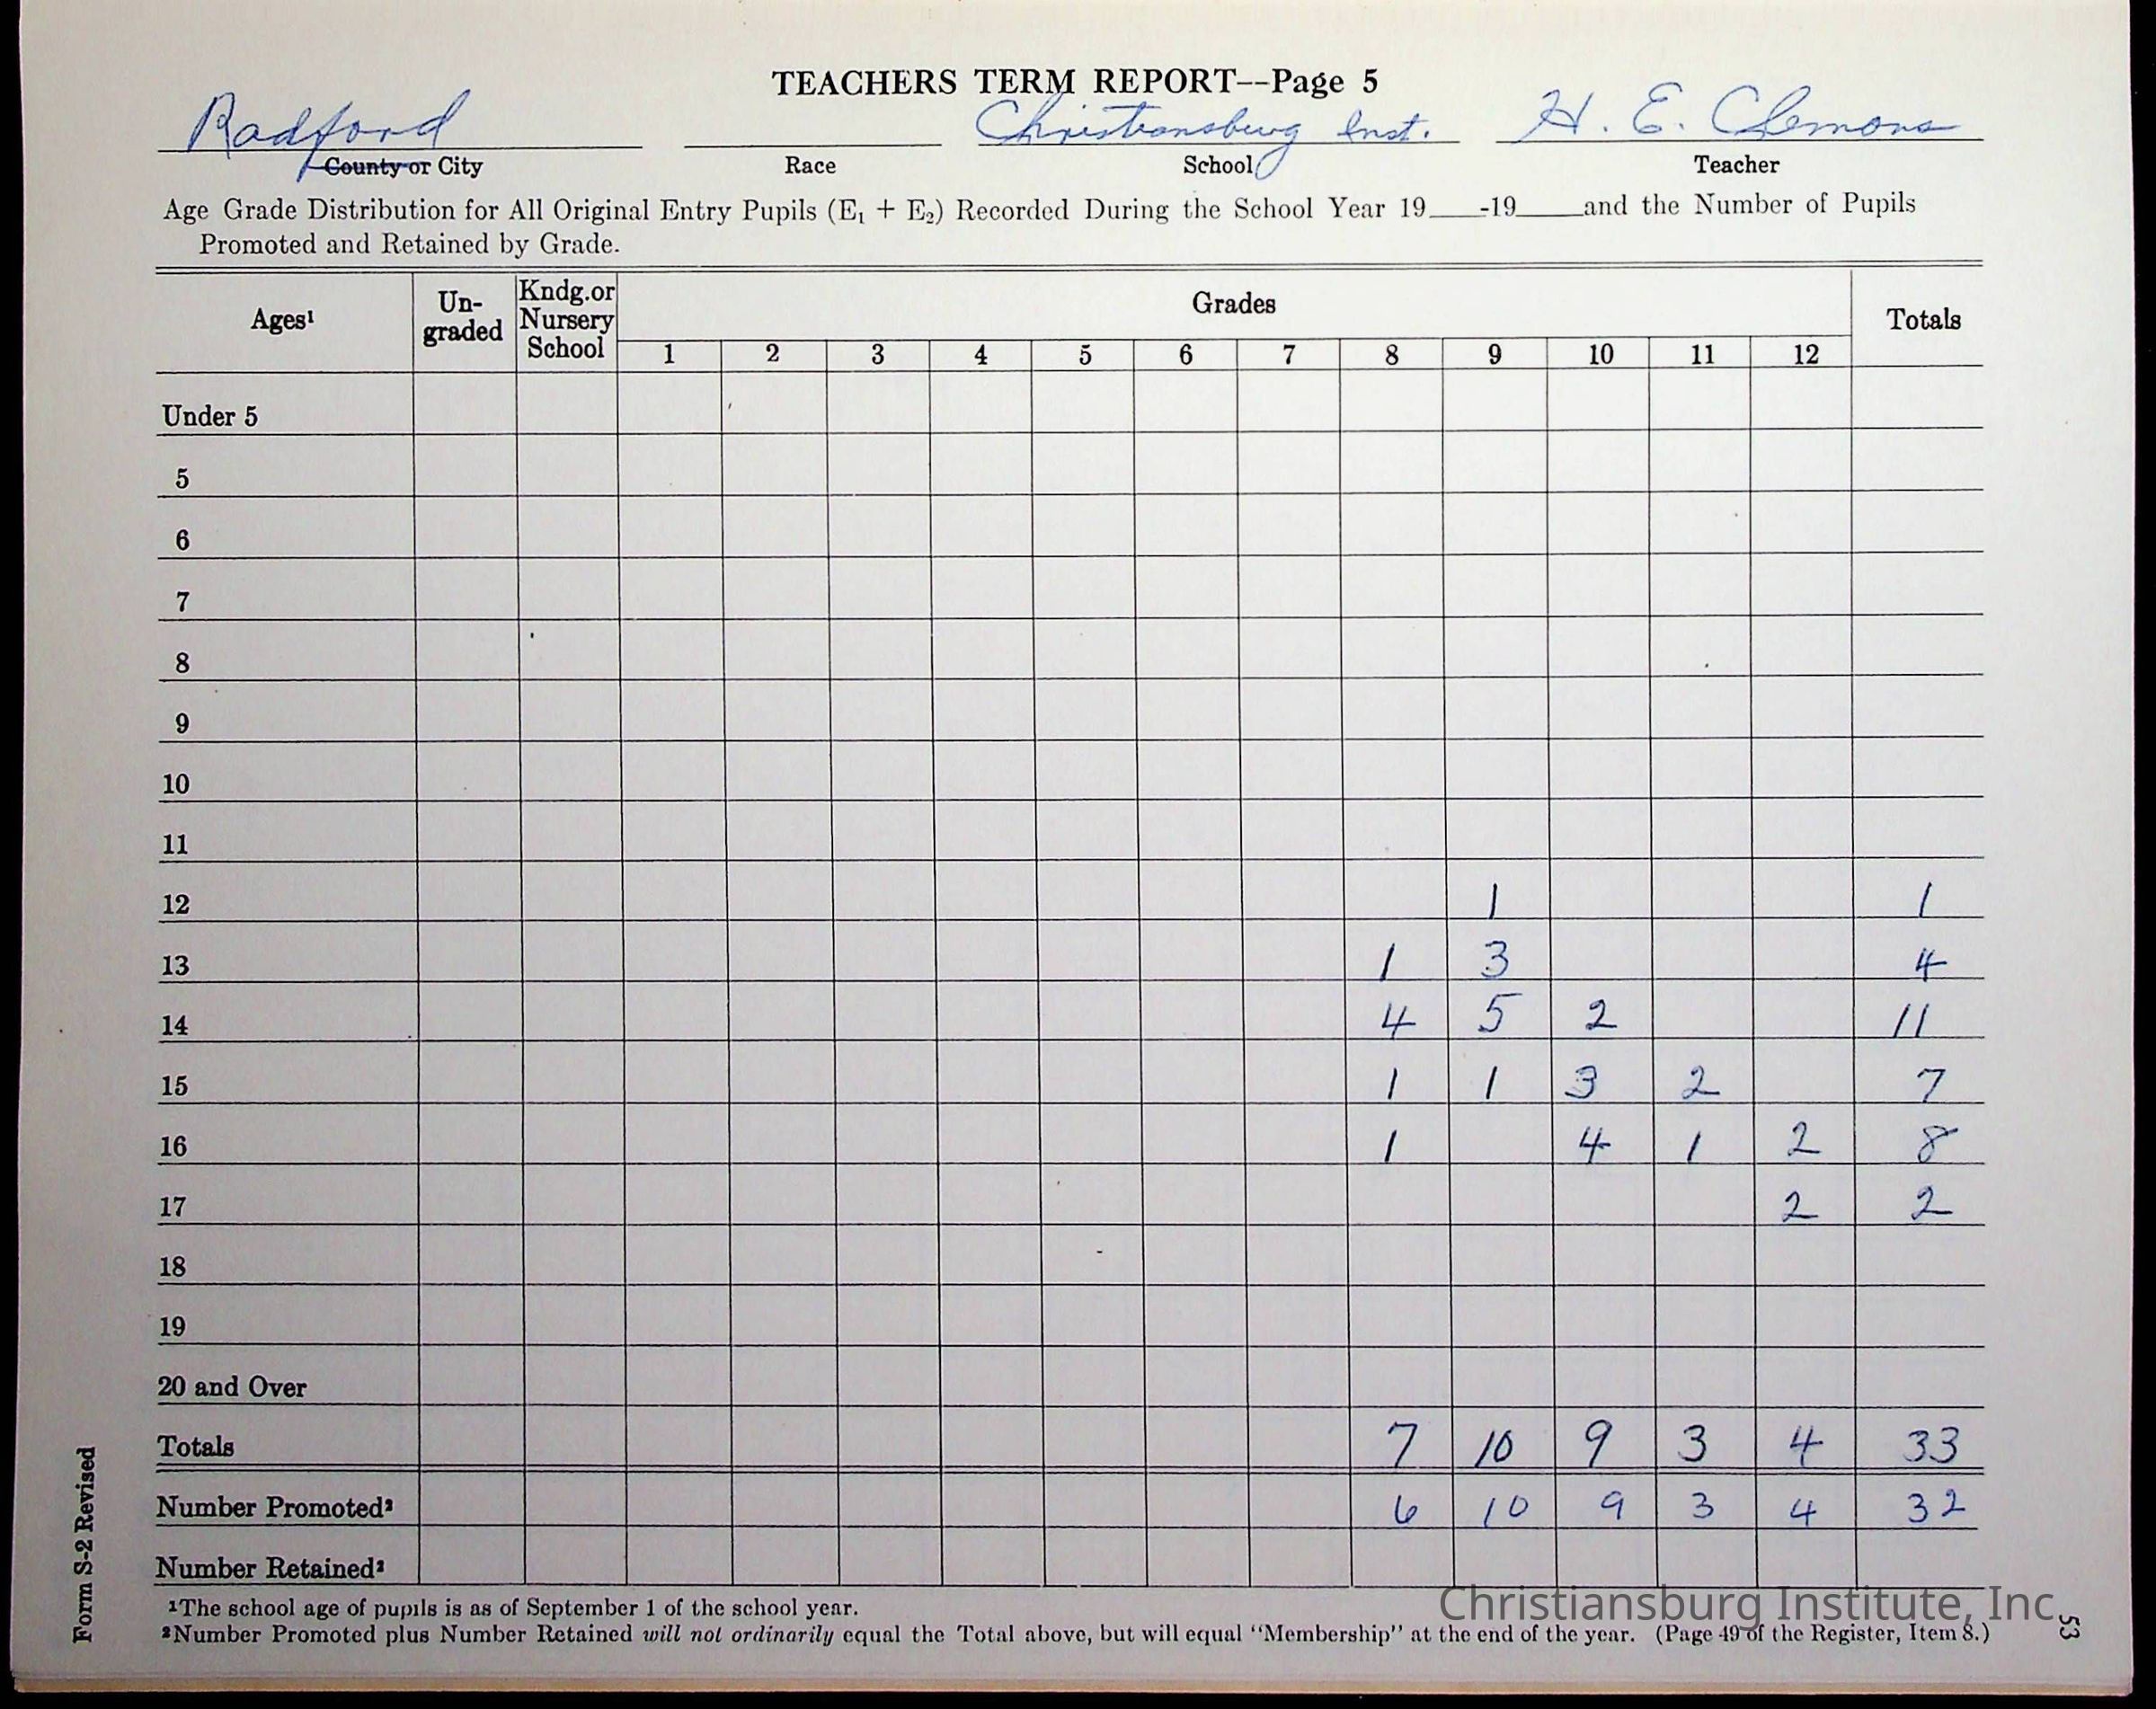 TEACHERS TERM REPORT--Page 5
Radford Christiansburg Inst. H. E. Clemons
County or City Race School Teacher
Age Grade Distribution for All Original Entry Pupils (E₁ + E₂) Recorded During the School Year 19____-19____and the Number of Pupils
Promoted and Retained by Grade.
Ages¹ Un-graded Kndg. or Nursery School Grades Totals
1 2 3 4 5 6 7 8 9 10 11 12
Under 5
5
6
7
8
9
10
11
12 1 1
13 1 3 4
14 4 5 2 11
15 1 1 3 2 7
16 1 4 1 2 8
17 2 2
18
19
20 and Over
Totals 7 10 9 3 4 33
Number Promoted² 6 10 9 3 4 32
Number Retained²
¹The school age of pupils is as of September 1 of the school year.
²Number Promoted plus Number Retained will not ordinarily equal the Total above, but will equal "Membership" at the end of the year. (Page 49 of the Register, Item 8.)
Form S-2 Revised
53
Christiansburg Institute, Inc.